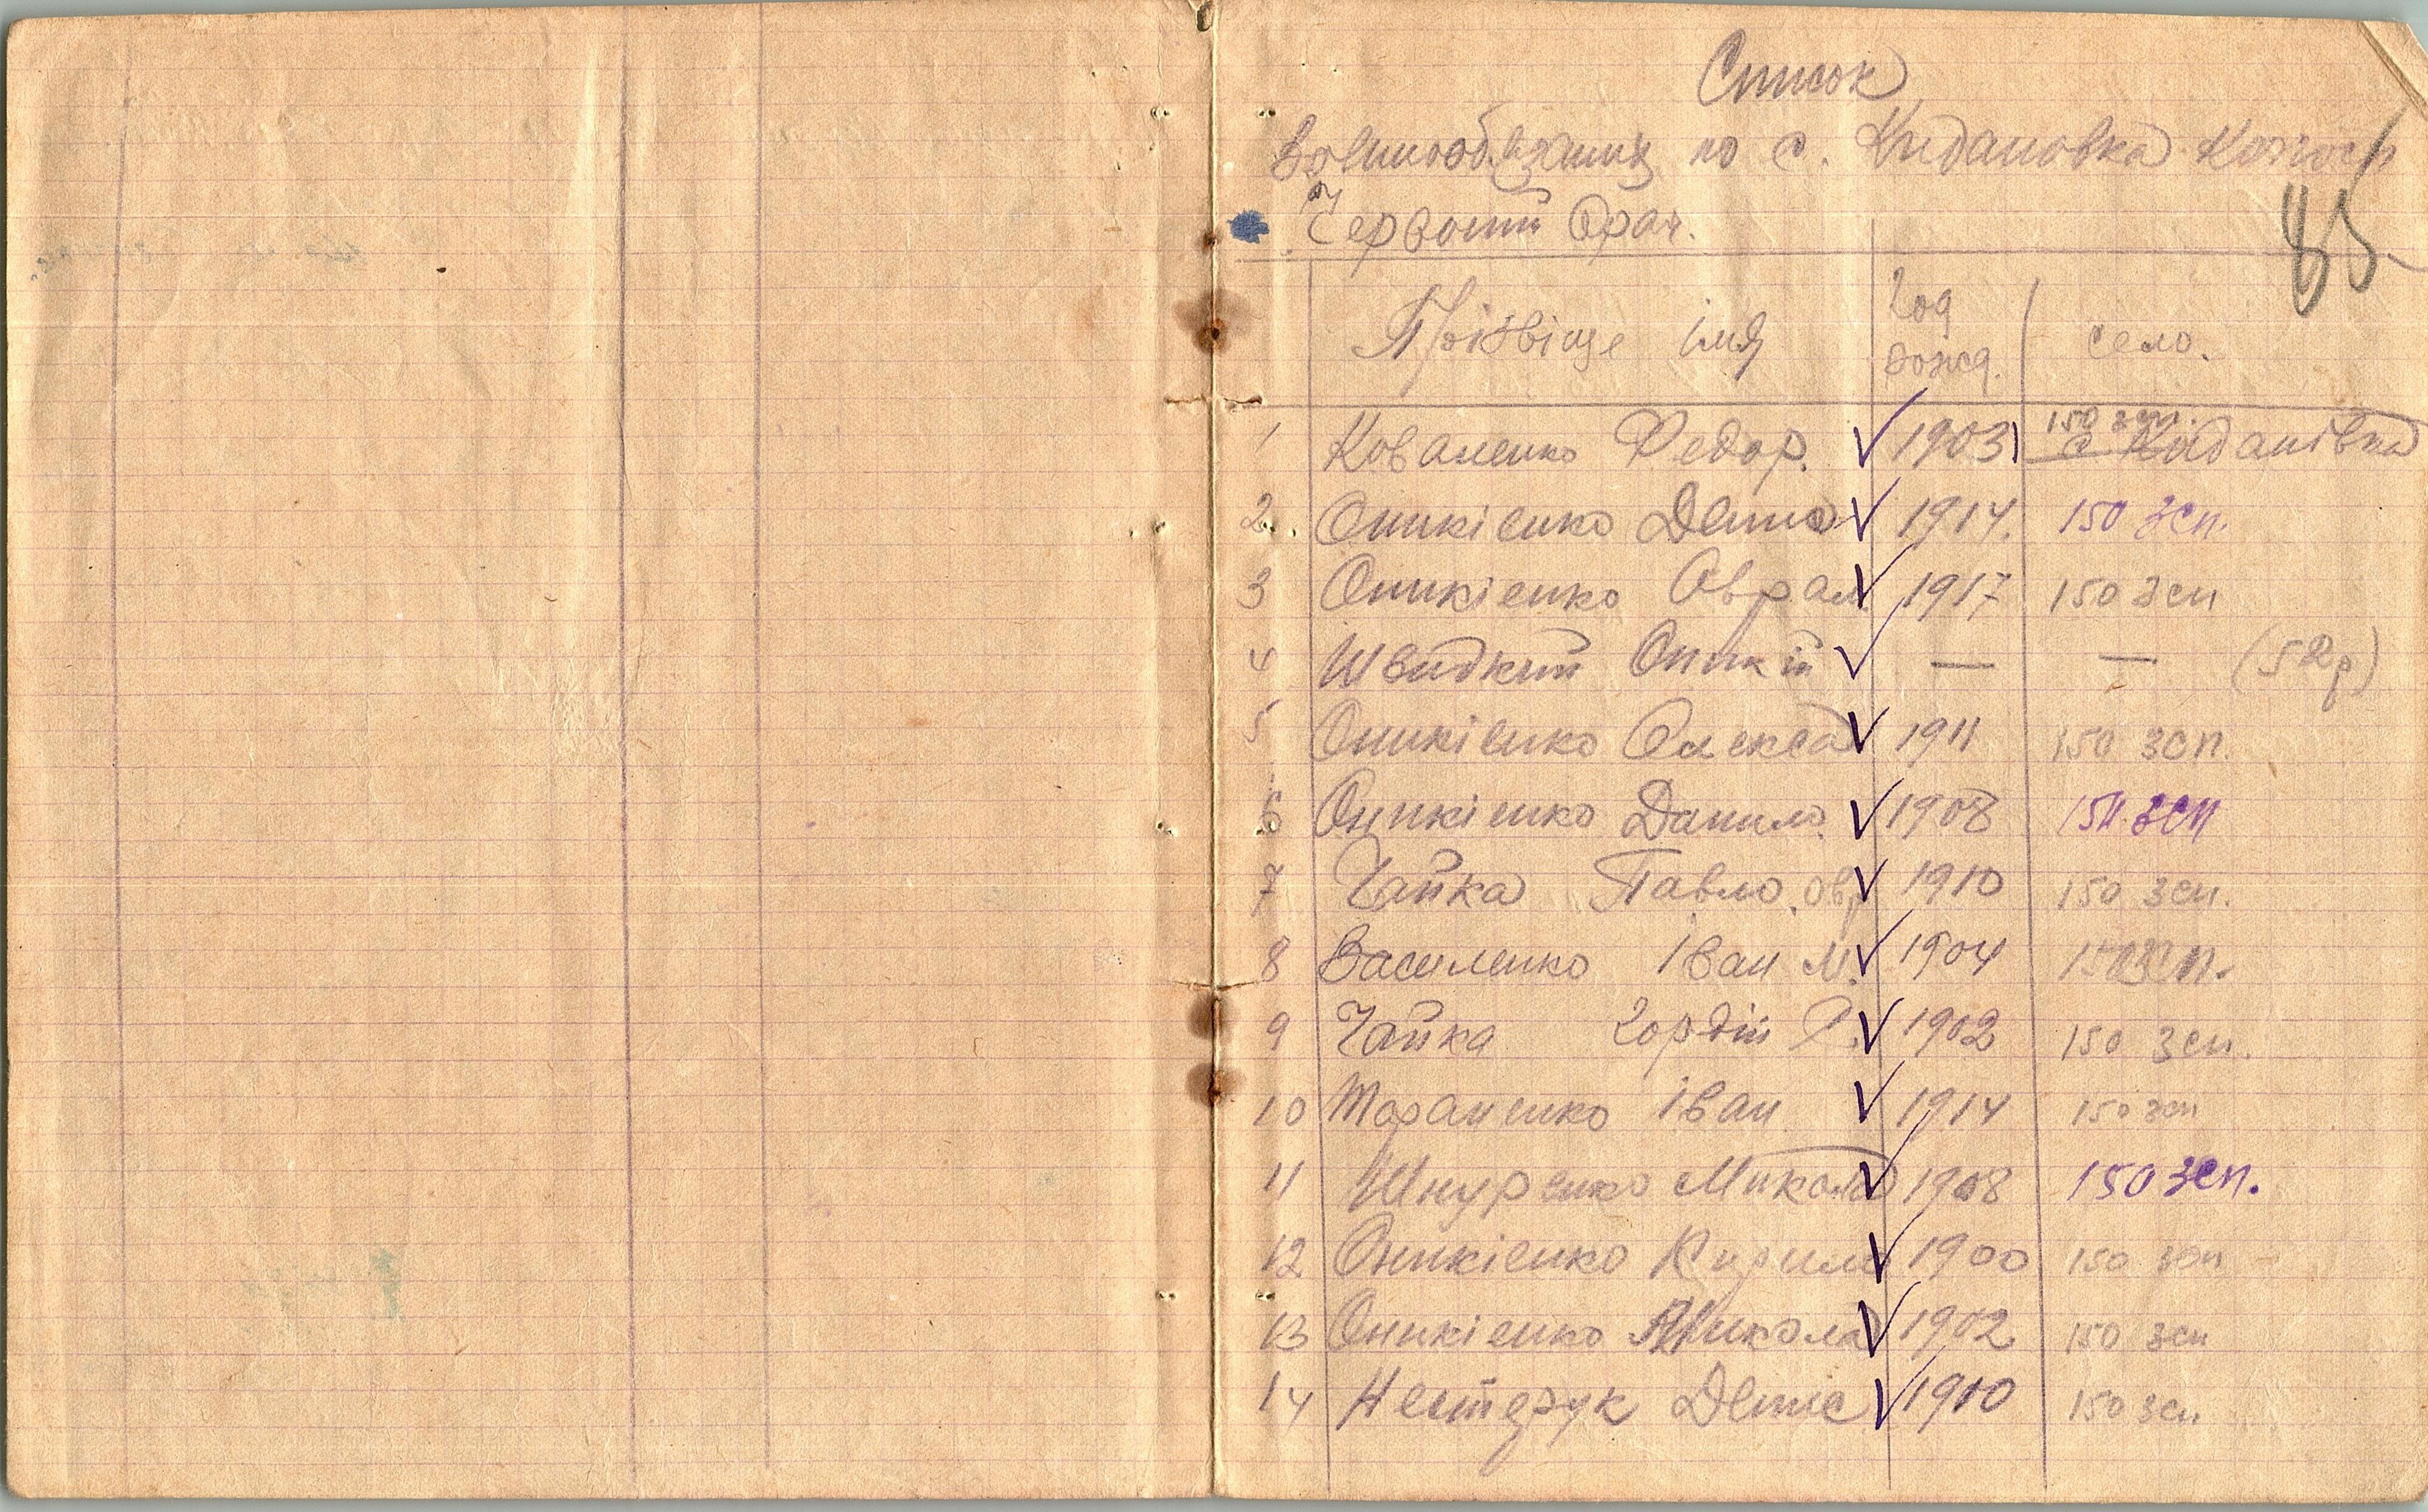 Список
Воєннообязаних по с. Кидановка Колгосп
Червоний Орач.
85
Прізвіще імя
Год
рожд.
село.
1 Коваленко Федор. ✓ 1903 150 зсп. с Киданівка
2. Оникієнко Денис ✓ 1914. 150 зсп.
3 Оникієнко Оврам ✓ 1917 150 зсп
4 Швидкий Оникій ✓ — — (52р)
5 Оникієнко Олекса ✓ 1911 150 зсп.
6 Оникієнко Данило. ✓ 1908 150 зсп
7 Чайка Павло. Овр ✓ 1910 150 зсп.
8 Василенко Іван М. ✓ 1904 150 зсп.
9 Чайка Гордій Р. ✓ 1902 150 зсп.
10 Тараненко Іван ✓ 1914 150 зсп
11 Шнуренко Микола ✓ 1908 150 зсп.
12 Оникієнко Кирило ✓ 1900 150 зсп
13 Оникієнко Микола ✓ 1902 150 зсп
14 Нестерук Денис ✓ 1910 150 зсп